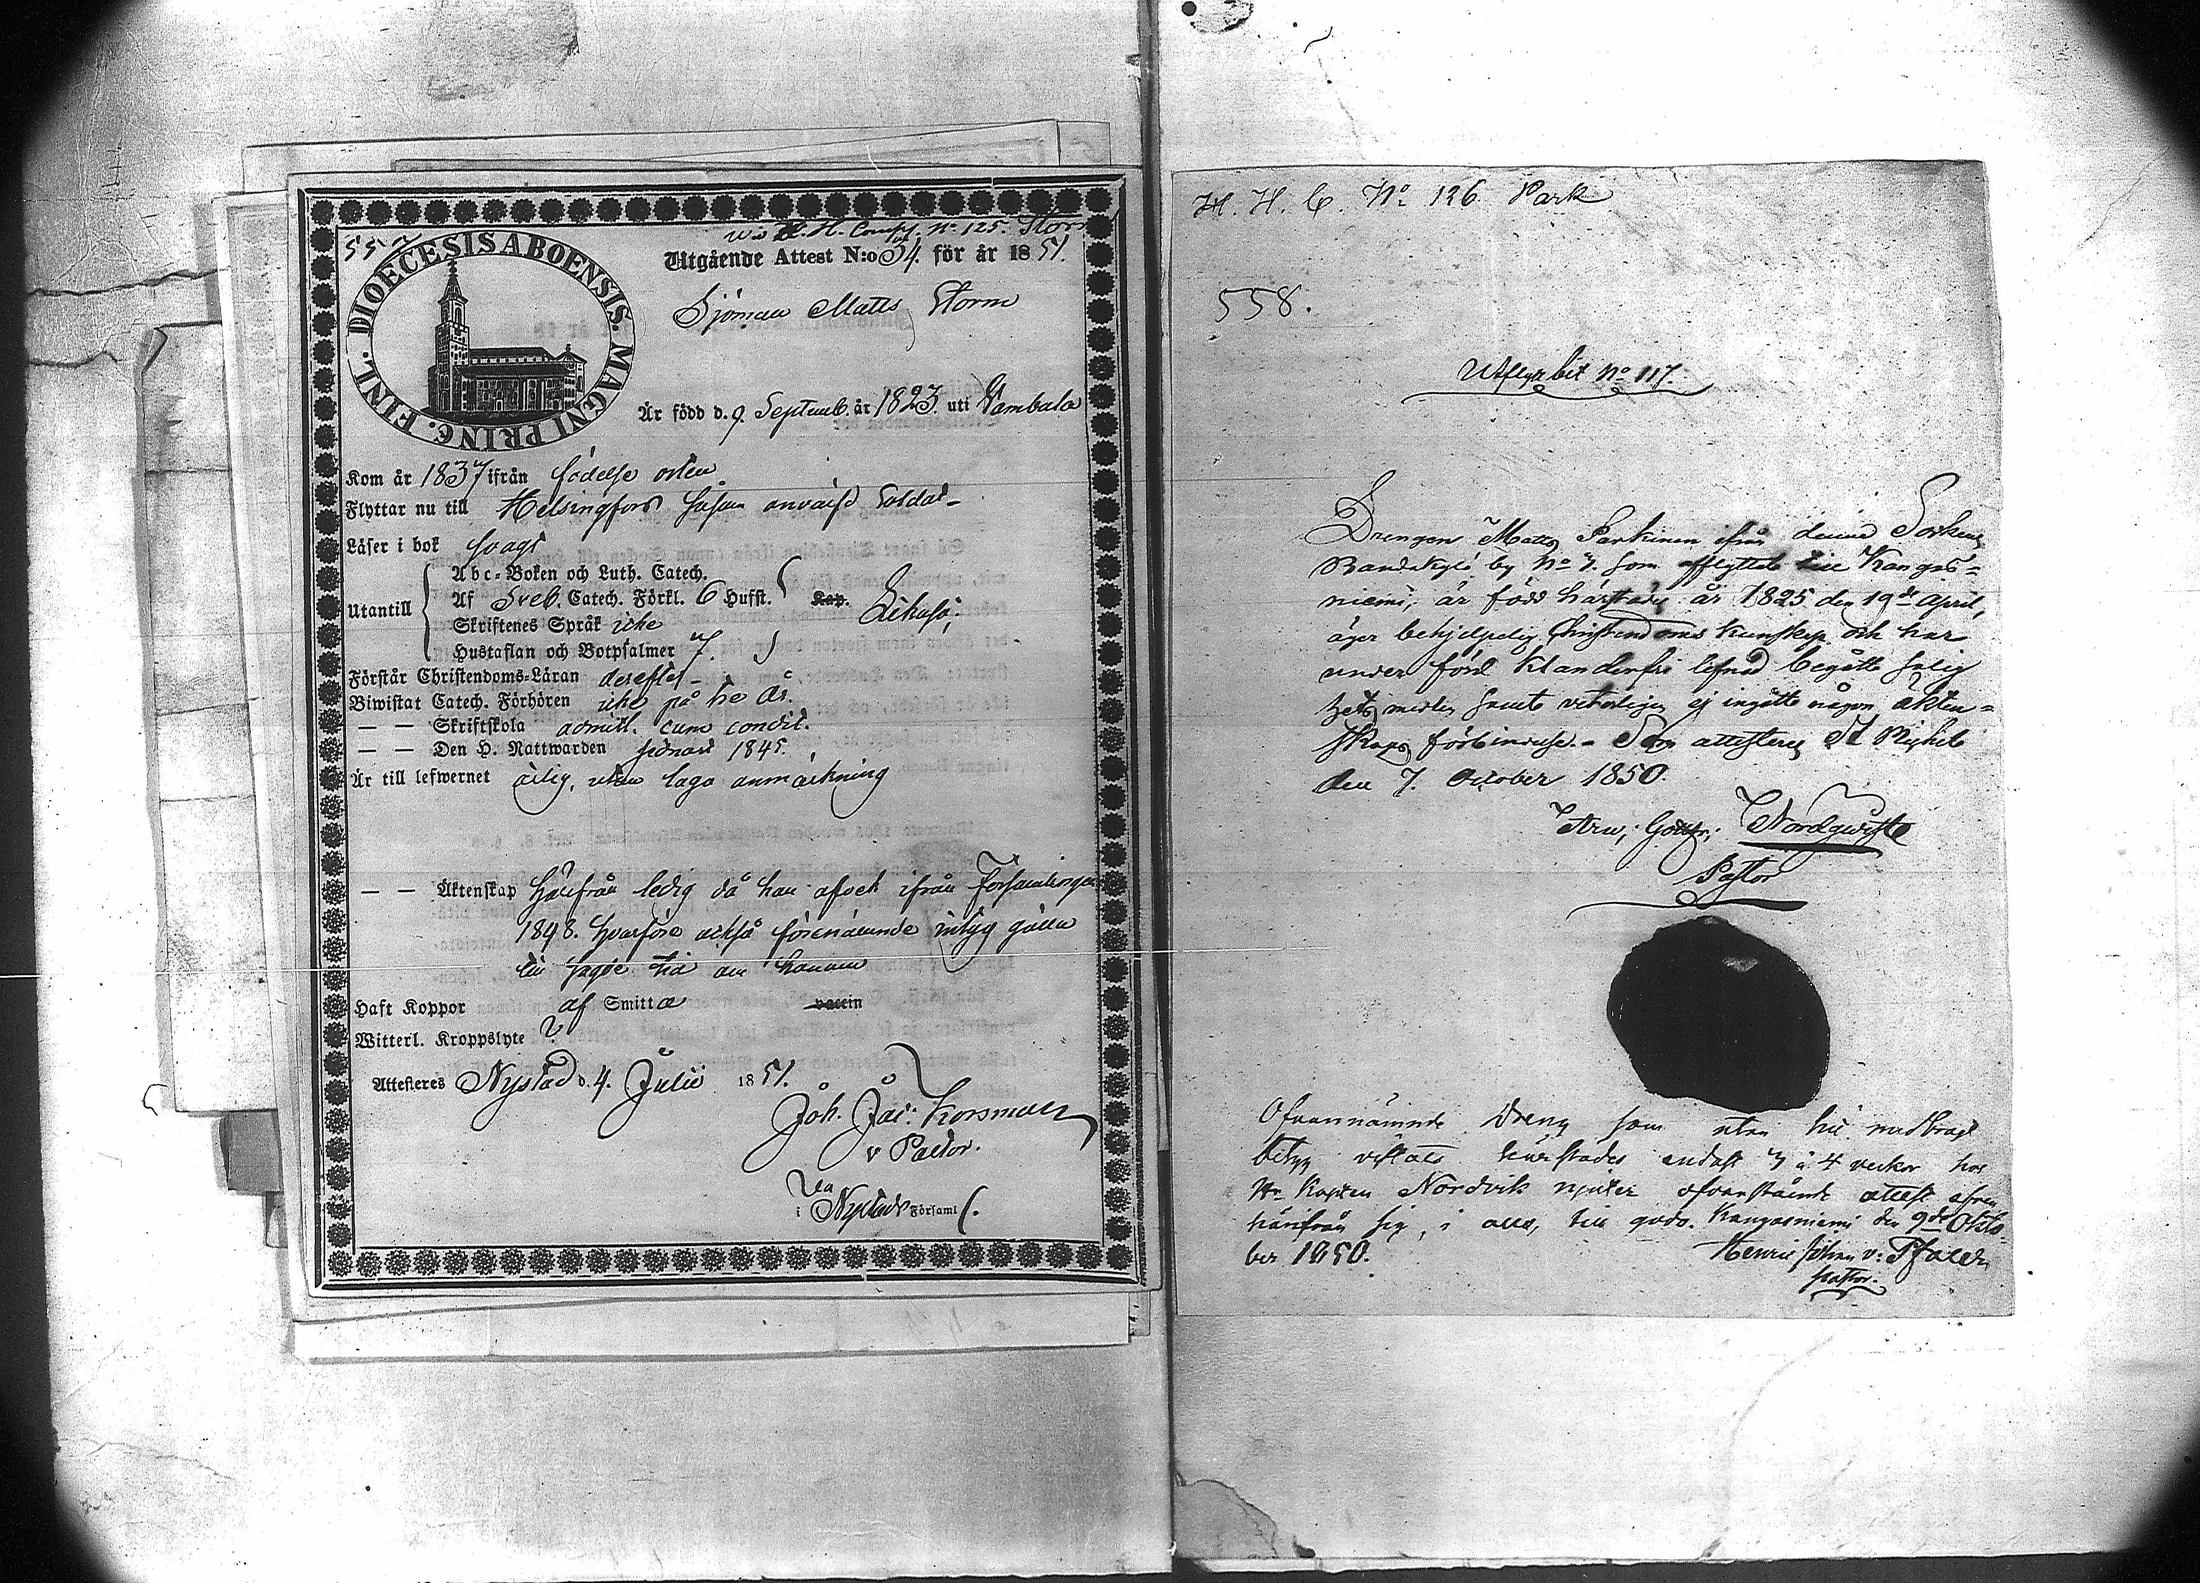 557
Wid H. H. Comp. N:o 125. Storm
DIOECESIS ABOENSIS. MAGNI PRINC. FINL.
Utgående Attest N:o 34. för år 1851.
Sjöman Matts Storm
Är född d. 9 Septemb. år 1823. uti Wambula
Kom år 1837 ifrån födelse orten
Flyttar nu till Helsingfors såsom antagen Soldat
Läser i bok svagt
Abc-Boken och Luth. Catech.
Utantill Af Sveb. Catech. Förkl. 6 Hufst. Kap.
Skriftenes Språk icke
Hustaflan och Botpsalmer 7.
Förstår Christendoms-Läran derefter
Biwistat Catech. Förhören icke på tre År.
— — Skriftskola admitt. cum condit.
— — Den H. Nattwarden sednast 1845.
Är till lefwernet ärlig, utan laga anmärkning
— — Äktenskap Härifrån ledig då han afvek ifrån Församlingen
1848. hvarföre också förenämnde intyg gälla
till sagde tid om honom
Haft Koppor af Smitta vaccin
Witterl. Kroppslyte ?
Attesteres Nystad d. 4. Julii 1851.
Joh. Jac: Korsman
v Pastor.
i Nystads Församl.
H. H. C. N:o 126. Park
558.
Utflyttn bet N:o 117.
Drengen Matts Parkinen ifrån denne Sockens
by N:o 7. som afflyttat till Kangas=
niemi, är född härstädes år 1825 den 19de April,
äger behjelpelig Christendoms kunskap och har
under förd klanderfri lefnad begått salig
hets medlen samt veterligen ej ingått någon äkten=
skaps förbindelse. - Som attesteras St Michel
den 7. October 1850.
Arw: Gottfr: Nordqwist
Pastor
Ofvannämnde Dreng som utan hit medbragt
betyg vistats härstädes endast 3 à 4 veckor hos
Hr Kapten Nordvik njuter ofvanstående attest äfven
härifrån sig, i allo, till godo. Kangasniemi den 9de Octo=
ber 1850. Henric Johan v: Pfaler
pastor.